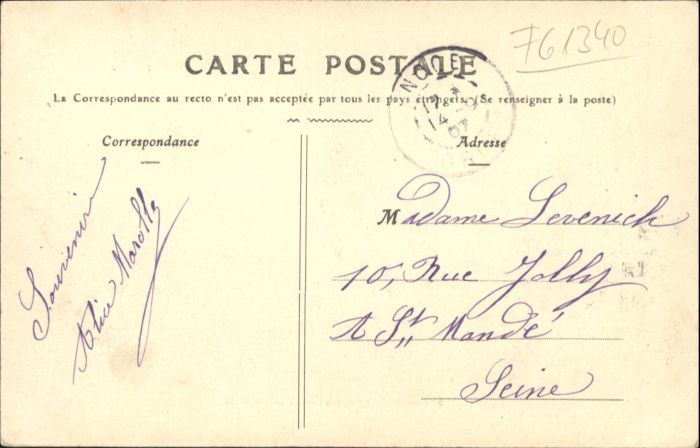 761340
CARTE POSTALE
La Correspondance au recto n'est pas acceptée par tous les pays étrangers. (Se renseigner à la poste)
Correspondance
Adresse
Souvenir
Alice Marotte
Madame Levenich
10, Rue Jolly
A St Mandé
Seine